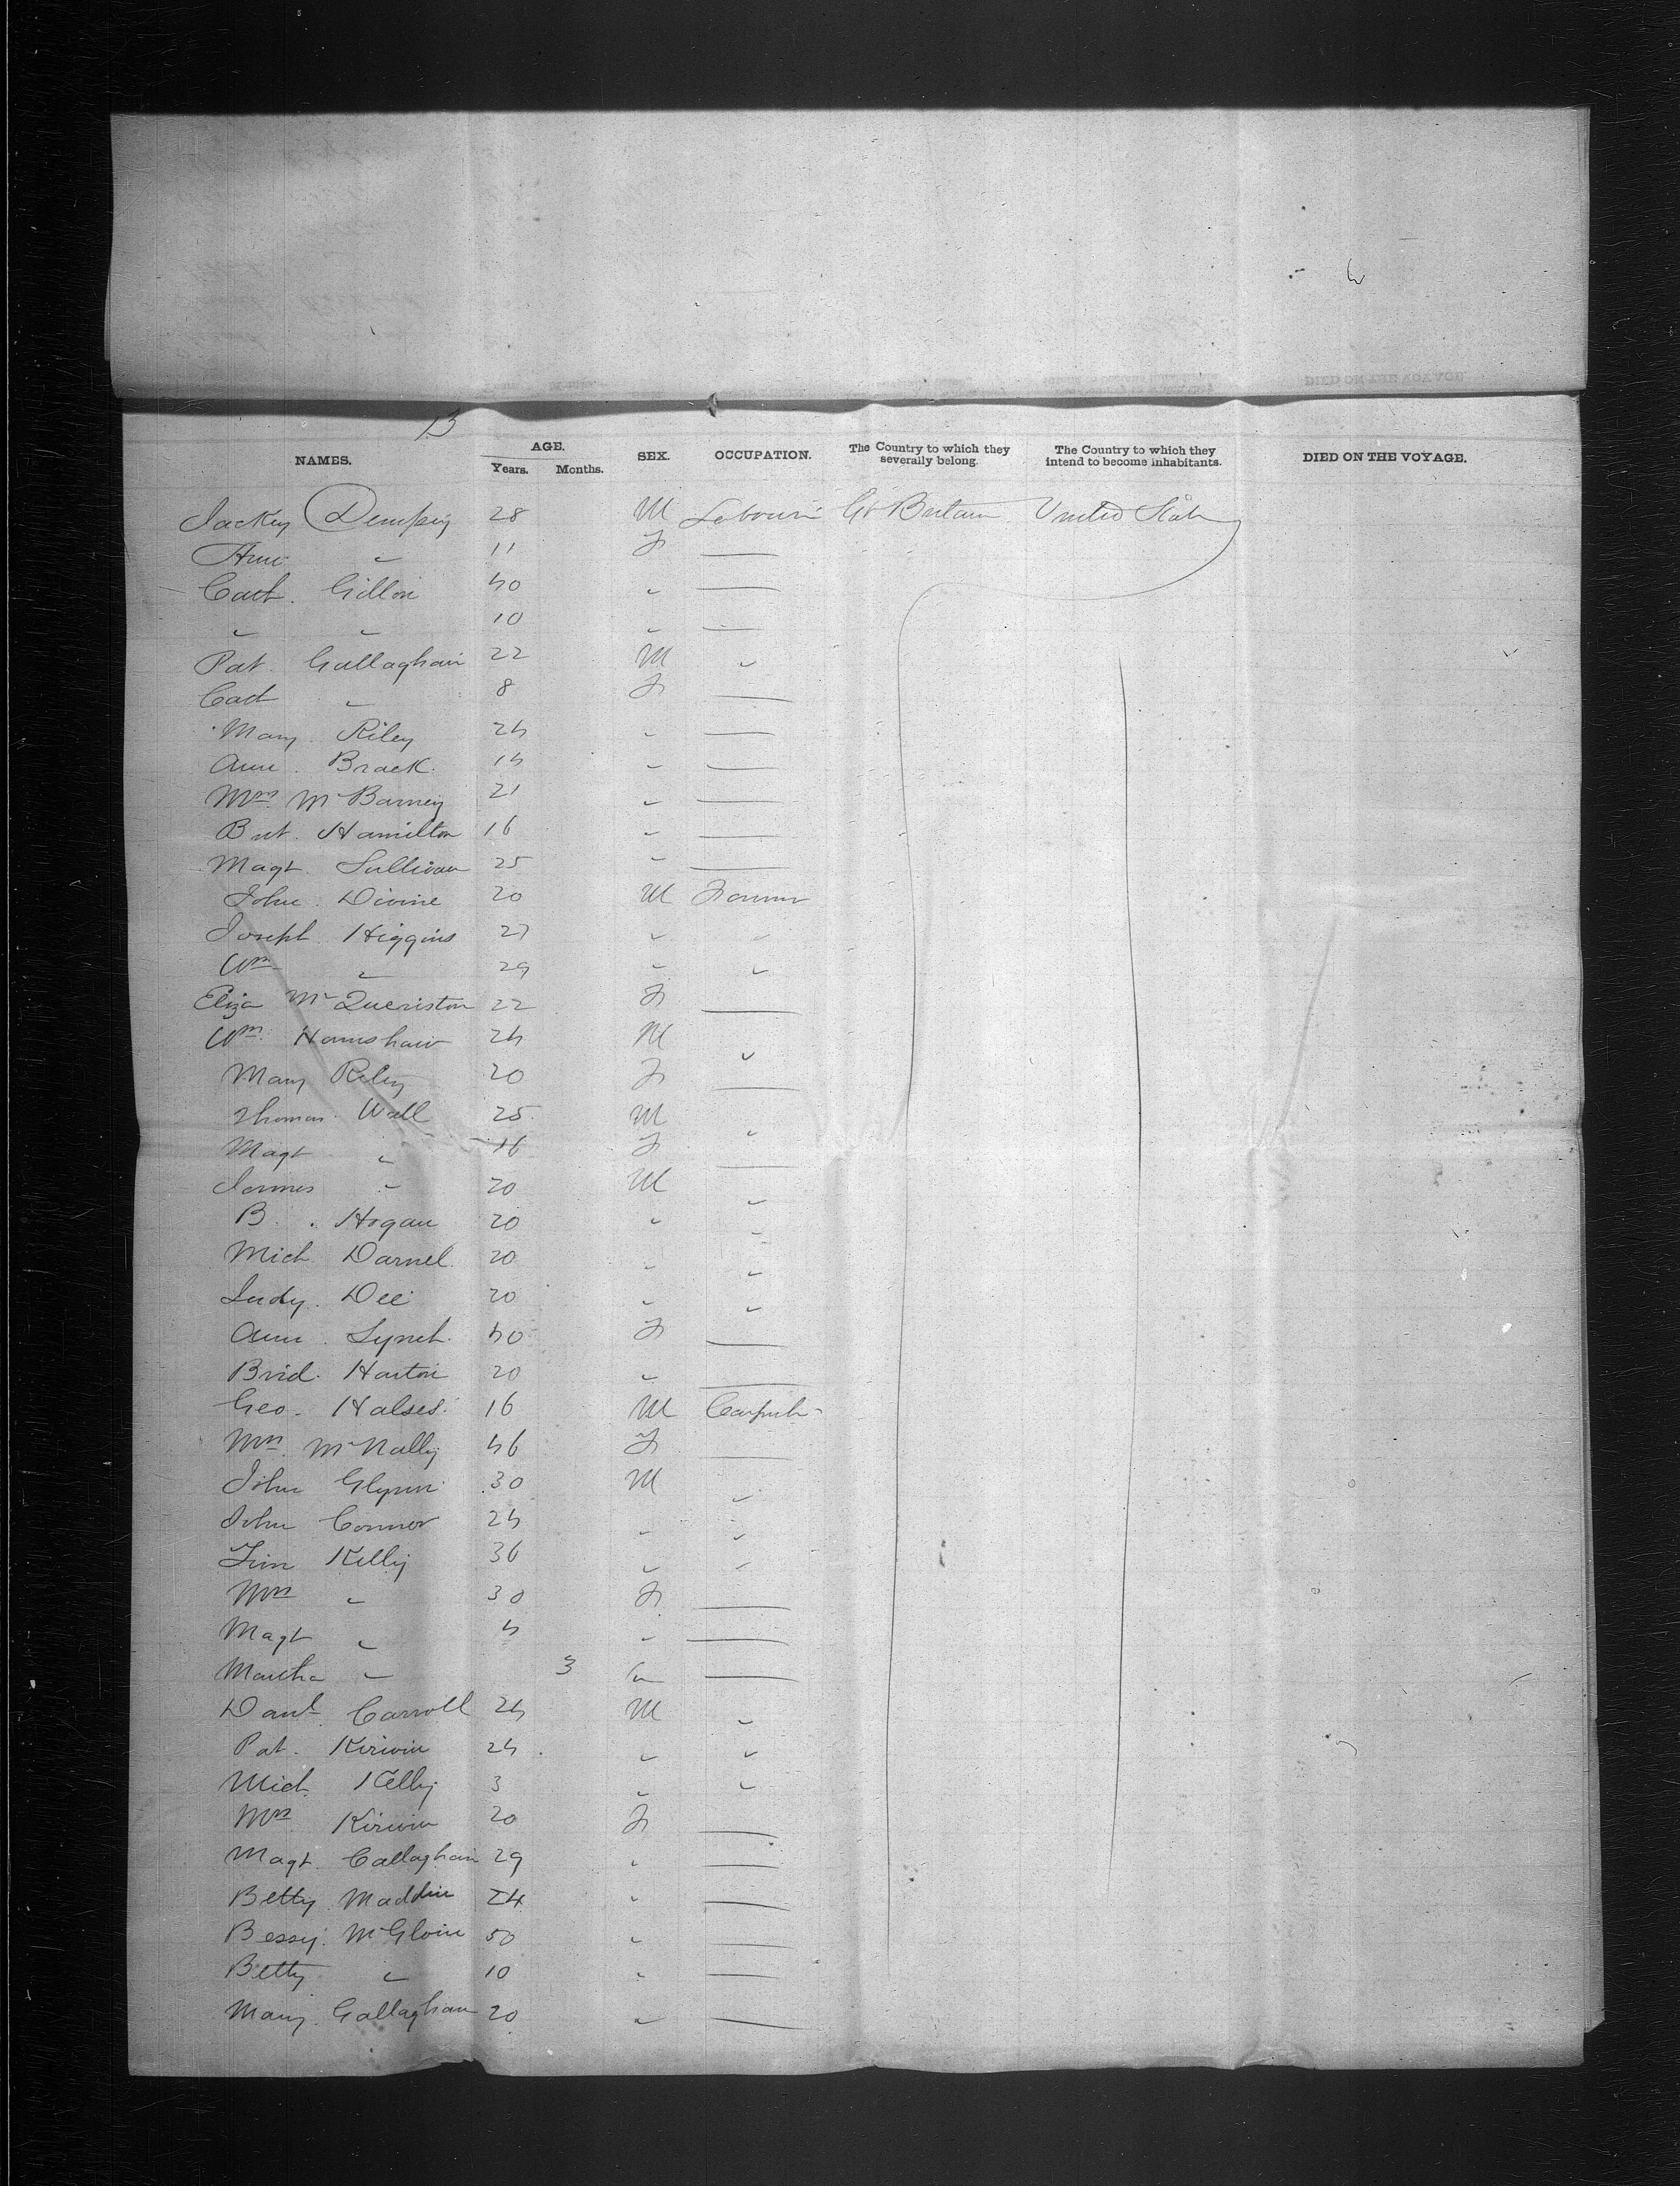 13
NAMES. AGE. Years. Months. SEX. OCCUPATION. The Country to which they severally belong. The Country to which they intend to become inhabitants. DIED ON THE VOYAGE.
Jackey Dempsey 28 M Labourer Gt Britain United States
Ann " 11 F —
Cath. Gillon 40 " —
" " 10 " —
Pat. Gallaghan 22 M "
Cath " 8 F —
Mary Riley 24 " —
Ann. Brack. 14 " —
Mrs. McBarney 21 " —
Brit. Hamilton 16 " —
Magt. Sullivan 25 " —
John. Divine 20 M Farmer
Joseph Higgins 27 " "
Wm " 29 " "
Eliza McQueriston 22 F —
Wm. Hamshaw 24 M "
Mary Riley 20 F —
Thomas. Wall 25 M "
Magt " 16 F —
James " 20 M "
B. Hogan 20 " "
Mich Darnel. 20 " "
Judy. Dee 20 " "
Ann. Lynch. 40 F —
Brid. Hartin 20 " —
Geo. Halses. 16 M Carpntr
Mrs. McNally 46 F —
John Glynn 30 M "
John Connor 24 " "
Tim Kelly 36 " "
Mrs " 30 F —
Magt " 4 " —
Martha " 3 " —
Danl. Carroll 24 M "
Pat. Kirwin 24 " "
Mich. Kelly 3 " "
Mrs Kirwin 20 F —
Magt. Callaghan 29 " —
Betty Maddin 24 " —
Bessy. McGloin 50 " —
Betty " 10 " —
Mary. Gallaghan 20 " —